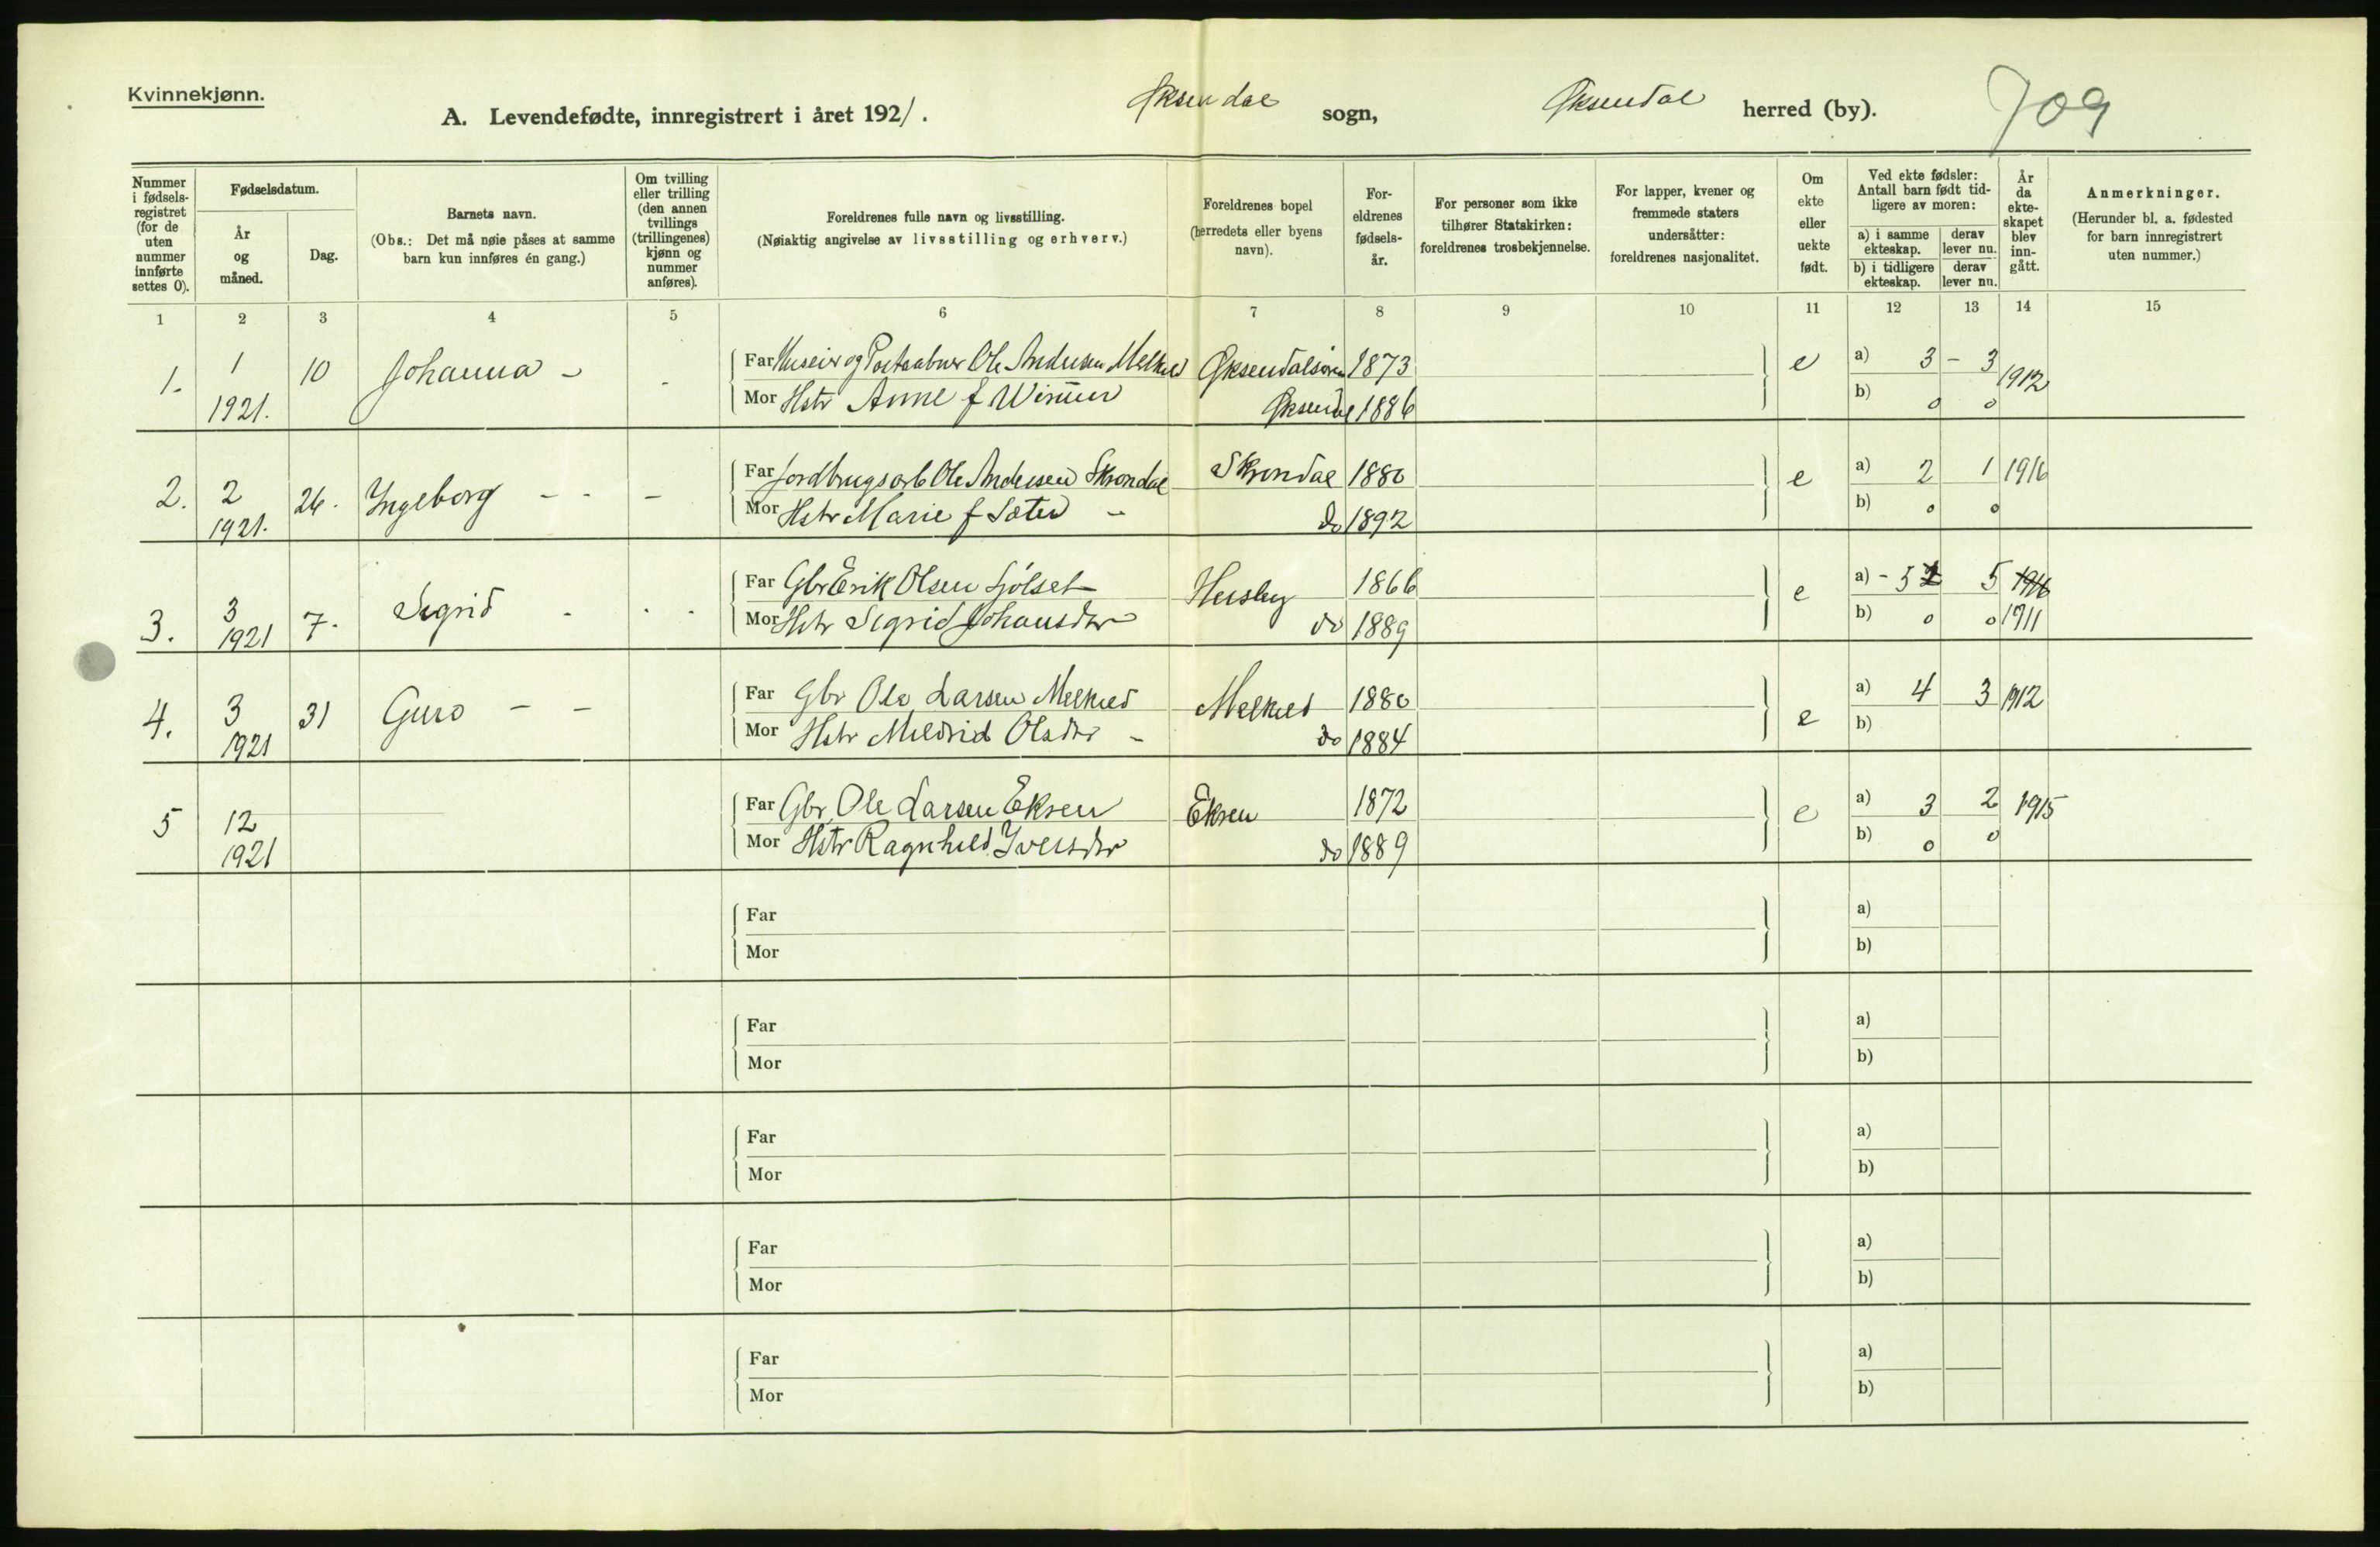 Kvinnekjønn.
A. Levendefødte, innregistrert i året 1921. Øksendal sogn, Øksendal herred (by). 709
Nummer i fødsels-registret (for de uten nummer innførte settes 0).
Fødselsdatum.
År og måned.
Dag.
Barnets navn.
(Obs.: Det må nøie påses at samme barn kun innføres én gang.)
Om tvilling eller trilling (den annen tvillings (trillingenes) kjønn og nummer anføres).
Foreldrenes fulle navn og livsstilling.
(Nøiaktig angivelse av livsstilling og erhverv.)
Foreldrenes bopel (herredets eller byens navn).
For-eldrenes fødsels-år.
For personer som ikke tilhører Statskirken: foreldrenes trosbekjennelse.
For lapper, kvener og fremmede staters undersåtter: foreldrenes nasjonalitet.
Om ekte eller uekte født.
Ved ekte fødsler: Antall barn født tid-ligere av moren:
a) i samme ekteskap. derav lever nu.
b) i tidligere ekteskap. derav lever nu.
År da ekte-skapet blev inn-gått.
Anmerkninger.
(Herunder bl. a. fødested for barn innregistrert uten nummer.)
1 2 3 4 5 6 7 8 9 10 11 12 13 14 15
1. 1 1921. 10 Johanna - -
Far og Postaabner Ole Andersen Øksendalsøren 1873 e a) 3 - 3 1912
Mor Hstr Anne f Øksendal 1886 b) 0 0
2. 2 1921. 26. Ingeborg - - -
Far Jordbrugsarb Ole Andersen Skrondal Skrondal 1880 e a) 2 1 1916
Mor Hstr Marie f Sæter - do 1892 b) 0 0
3. 3 1921 7. Sigrid - - -
Far Gbr Erik Olsen Sjölset Husby 1866 e a) - 5 5 1916
Mor Hstr Sigrid Johansdtr do 1889 b) 0 0 1911
4. 3 1921 31 Guro - -
Far Gbr Ole Larsen Melkild Melkild 1880 e a) 4 3 1912
Mor Hstr Mildrid Olsdtr - do 1884 b)
5 12 1921
Far Gbr Ole Larsen Eksen Eksen 1872 e a) 3 2 1915
Mor Hstr Ragnhild Iversdtr do 1889 b) 0 0
Far a)
Mor b)
Far a)
Mor b)
Far a)
Mor b)
Far a)
Mor b)
Far a)
Mor b)